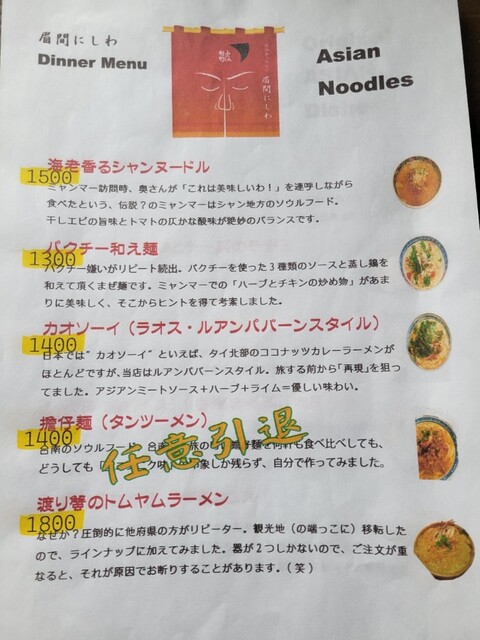 眉間にしわ
Dinner Menu
皺
眉間にしわ
Asian
Noodles
海老香るシャンヌードル
1500
ミャンマー訪問時、奥さんが「これは美味しいわ！」を連呼しながら
食べたという、伝説？のミャンマーはシャン地方のソウルフード。
干しエビの旨味とトマトの仄かな酸味が絶妙のバランスです。
パクチー和え麺
1300
パクチー嫌いがリピート続出。パクチーを使った３種類のソースと蒸し鶏を
和えて頂くまぜ麺です。ミャンマーでの「ハーブとチキンの炒め物」があま
りに美味しく、そこからヒントを得て考案しました。
カオソーイ（ラオス・ルアンパバーンスタイル）
1400
日本では”カオソーイ”といえば、タイ北部のココナッツカレーラーメンが
ほとんどですが、当店はルアンパバーンスタイル。旅する前から「再現」を狙っ
てました。アジアンミートソース＋ハーブ＋ライム＝優しい味わい。
擔仔麺（タンツーメン）
1400
台南のソウルフード。台南 旅の 仔麺を何軒も食べ比べしても、
どうしても「 ク味 象しか残らず、自分で作ってみました。
任意引退
渡り蟹のトムヤムラーメン
1800
なぜか？圧倒的に他府県の方がリピーター。観光地（の端っこに）移転した
ので、ラインナップに加えてみました。器が２つしかないので、ご注文が重
なると、それが原因でお断りすることがあります。（笑）